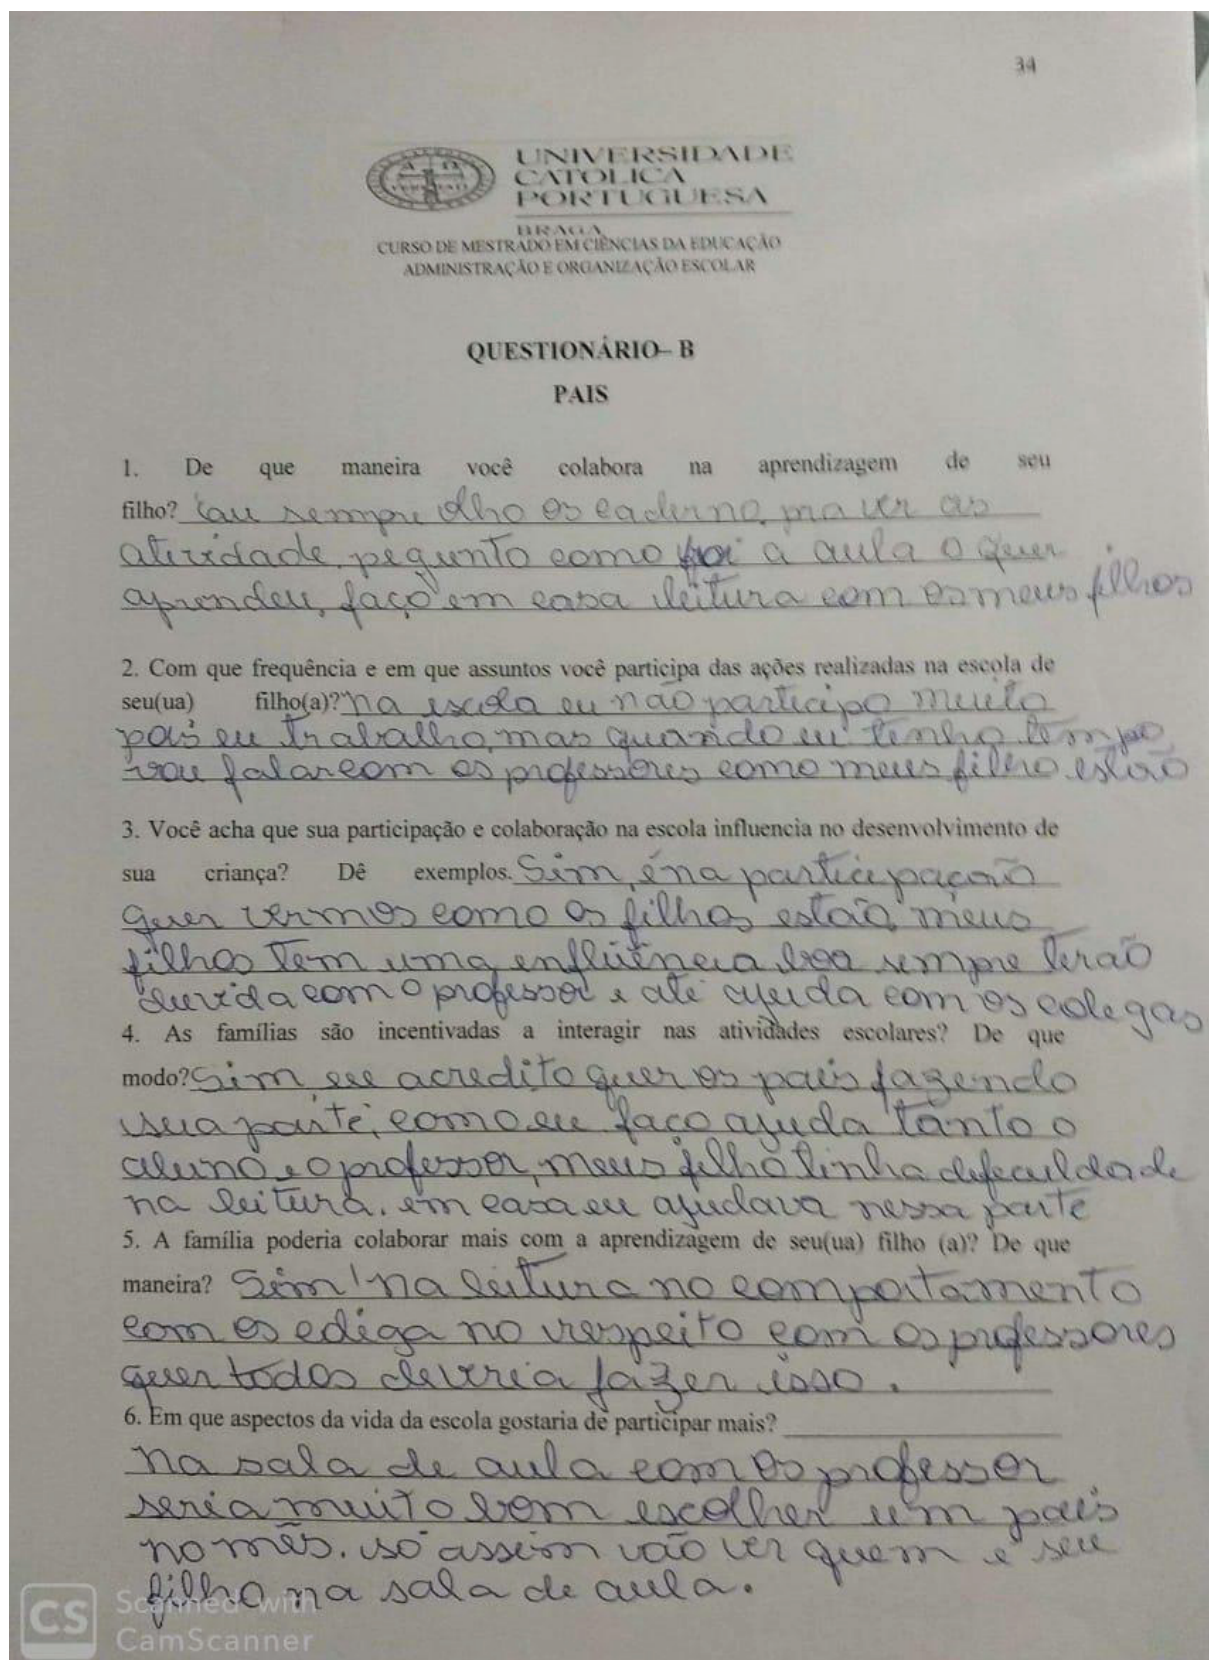 34
UNIVERSIDADE
CATOLICA
PORTUGUESA
BRAGA
CURSO DE MESTRADO EM CIÊNCIAS DA EDUCAÇÃO
ADMINISTRAÇÃO E ORGANIZAÇÃO ESCOLAR
QUESTIONÁRIO– B
PAIS
1. De que maneira você colabora na aprendizagem de seu
filho? sempre olho os caderno, pra ver as
atividade, pegunto como foi a aula o quer
aprendeu, faço em casa leitura com os meus filhos
2. Com que frequência e em que assuntos você participa das ações realizadas na escola de
seu(ua) filho(a)? Na escola eu não participo muito
pois eu trabalho, mas quando eu tenho tempo
vou falar com os professores como meus filho estão
3. Você acha que sua participação e colaboração na escola influencia no desenvolvimento de
sua criança? Dê exemplos. Sim, é na participação
quer vermos como os filhos estão, meus
filhos tem uma enfluência boa sempre terão
duvida com o professor e até ajuda com os colegas
4. As famílias são incentivadas a interagir nas atividades escolares? De que
modo? Sim eu acredito quer os pais fazendo
sua parte, como eu faço ajuda tanto o
aluno e o professor, meus filho tinha defeculdade
na leitura, em casa eu ajudava nessa parte
5. A família poderia colaborar mais com a aprendizagem de seu(ua) filho (a)? De que
maneira? Sim! na leitura no comportamento
com os no respeito com os professores
quer todos deveria fazer isso.
6. Em que aspectos da vida da escola gostaria de participar mais?
Na sala de aula com os professor
seria muito bom escolher um pais
no mês. só assim vão ver quem e seu
filho na sala de aula.
CS Scanned with
CamScanner